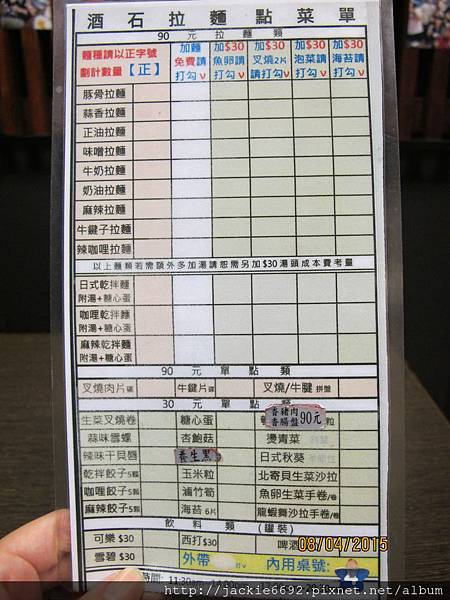 酒石拉麵點菜單
90 元 拉 麵 類
麵種請以正字號劃計數量【正】
加麵免費請打勾V
加$30魚卵請打勾V
加$30叉燒2片請打勾V
加$30泡菜請打勾V
加$30海苔請打勾V
豚骨拉麵
蒜香拉麵
正油拉麵
味噌拉麵
牛奶拉麵
奶油拉麵
麻辣拉麵
牛鍵子拉麵
辣咖哩拉麵
以上麵類若需額外多加湯請恕需另加$30湯頭成本費考量
日式乾拌麵
附湯+糖心蛋
咖哩乾拌麵
附湯+糖心蛋
麻辣乾拌麵
附湯+糖心蛋
90 元 單 點 類
叉燒肉片 牛鍵片 叉燒/牛腱 拼盤
30 元 單 點 類
生菜叉燒卷 糖心蛋 香豬肉香腸盤90元 粒
蒜味雪螺 杏鮑菇 燙青菜
辣味干貝唇 養生黑 日式秋葵
乾拌餃子5顆 玉米粒 北寄貝生菜沙拉
咖哩餃子5顆 滷竹筍 魚卵生菜手卷/卷
麻辣餃子5顆 海苔6片 龍蝦舞沙拉手卷/卷
飲 料 類 (罐裝)
可樂 $30 西打$30 啤酒
雪碧 $30 外帶 打V 內用桌號:
時間: 11:30am
08/04/2015
http://jackie6692.pixnet.net/album